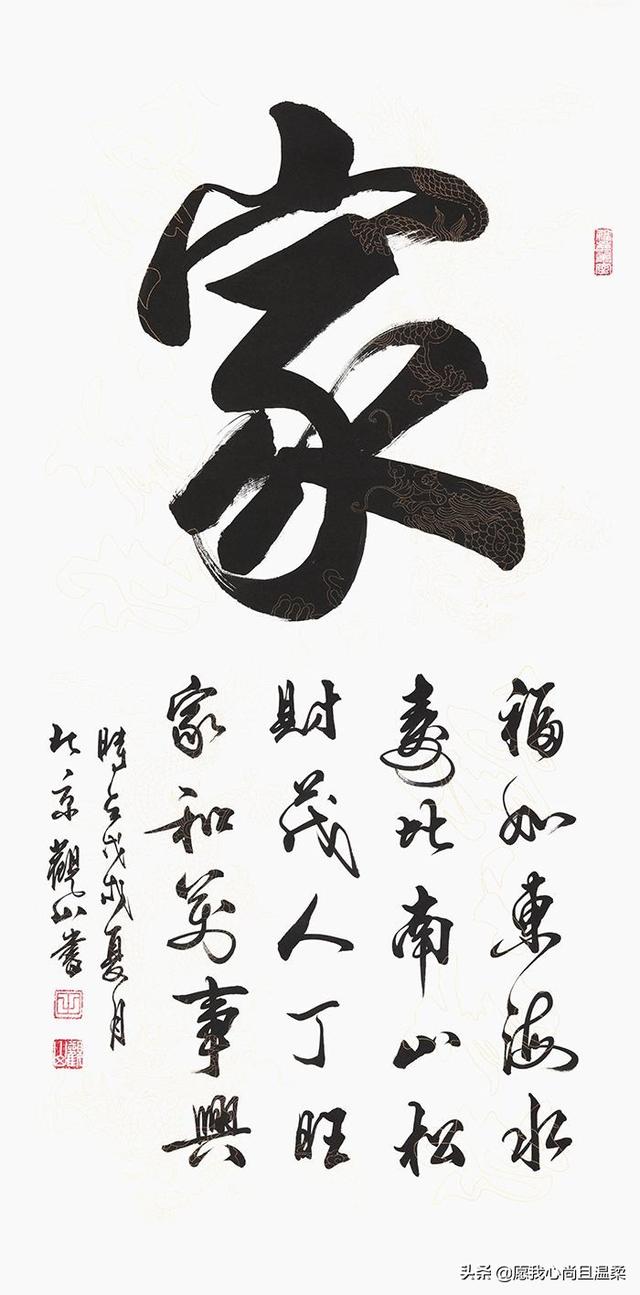 家
福如東海水
壽比南山松
財茂人丁旺
家和萬事興
時在戊戌夏月
北京觀山書
头条 @愿我心尚且温柔